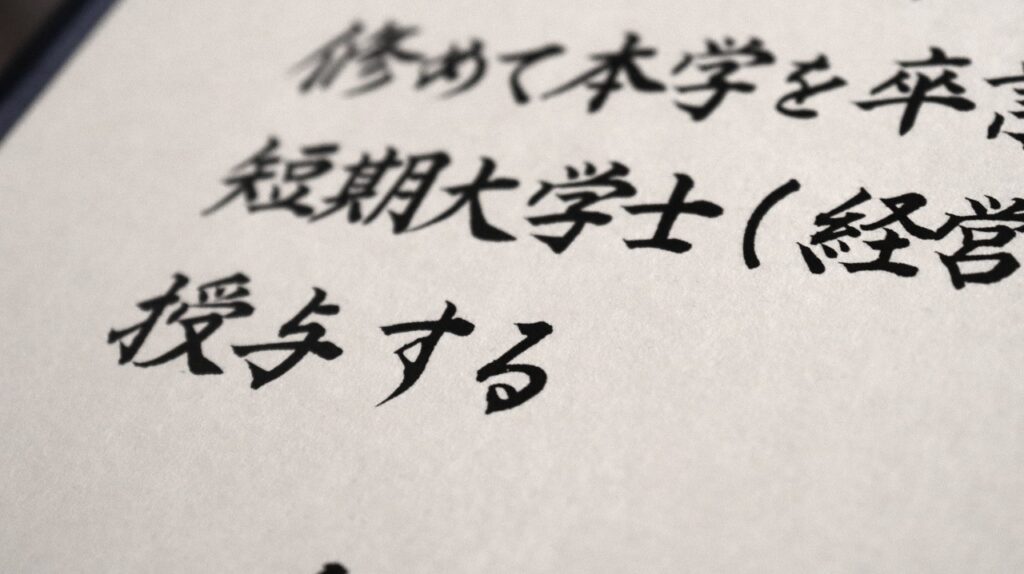 修めて本学を卒
短期大学士(経営
授与する